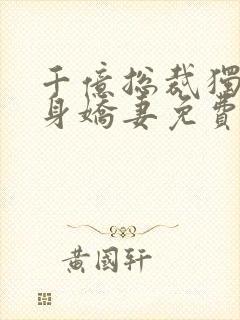 千億總裁獨
身嬌妻免費
黃國軒